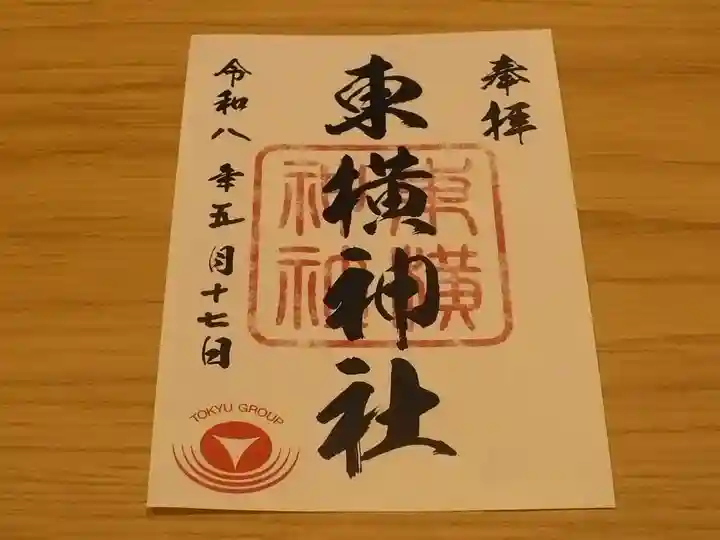 奉拝
東横神社
東横
神社
令和八年五月十七日
TOKYU GROUP